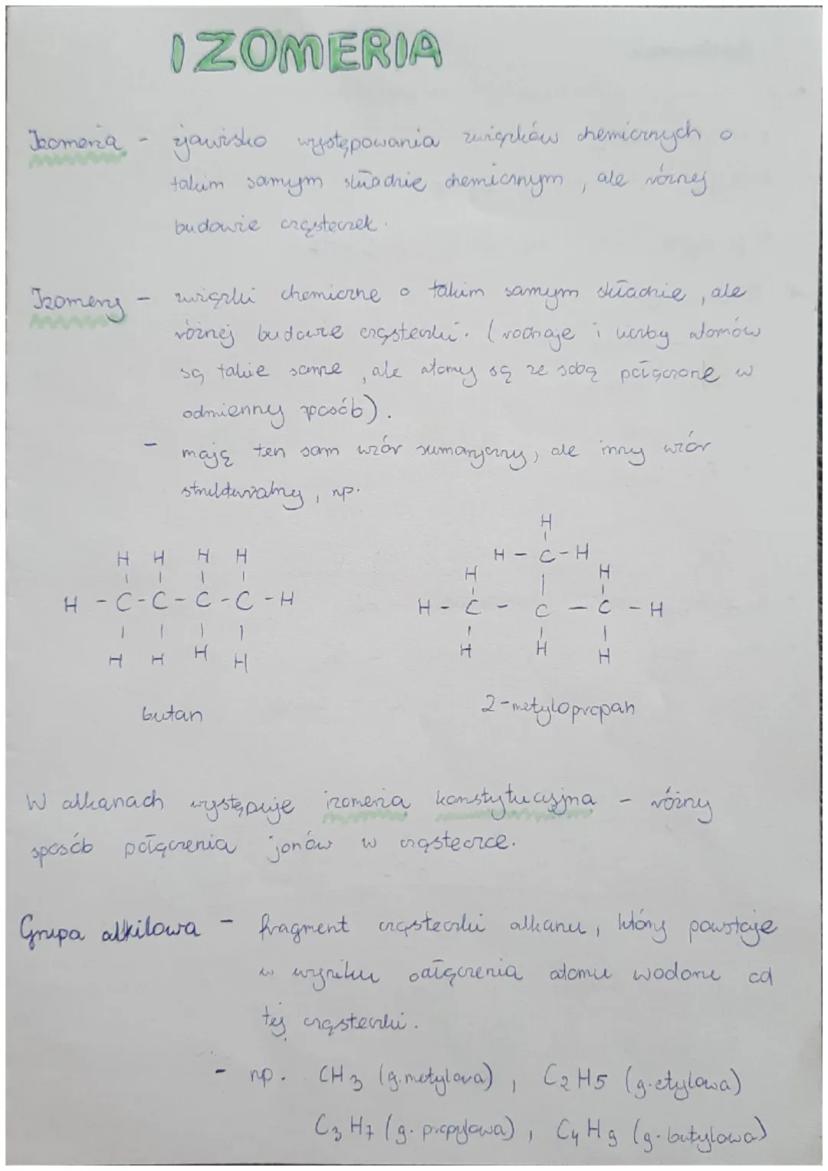 IZOMERIA
Izomeria - zjawisko występowania związków chemicznych o
takim samym składzie chemicznym, ale różnej
budowie cząsteczek.
Izomery - związki chemiczne o takim samym składzie, ale
różnej budowie cząsteczki. (rodzaje i liczby atomów
są takie same, ale atomy są ze sobą połączone w
odmienny sposób).
- mają ten sam wzór sumaryczny, ale inny wzór
strukturalny, np.
H
H - C - H
H H H H
H H
H - C - C - C - C - H
H - C - C - C - H
H H H H
H H H
butan
2-metylopropan
W alkanach występuje izomeria konstytucyjna - różny
sposób połączenia jonów w cząsteczce.
Grupa alkilowa - fragment cząsteczki alkanu, który powstaje
w wyniku odłączenia atomu wodoru od
tej cząsteczki.
- np. CH3 (g.metylowa), C2H5 (g.etylowa)
C3H7 (g. propylowa), C4H9 (g. butylowa)